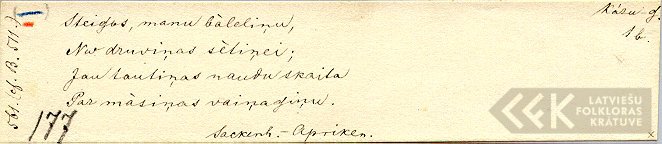 Steigos, manu bāleliņu,
No druviņas sētiņei;
Jau tautiņas naudu skaita
Par māsiņas vaiņagiņu.
Sackenh.-Apriken.
Kāzu g.
1b.
561. (cf. B. 511.)
177
LATVIEŠU
FOLKLORAS
KRĀTUVE